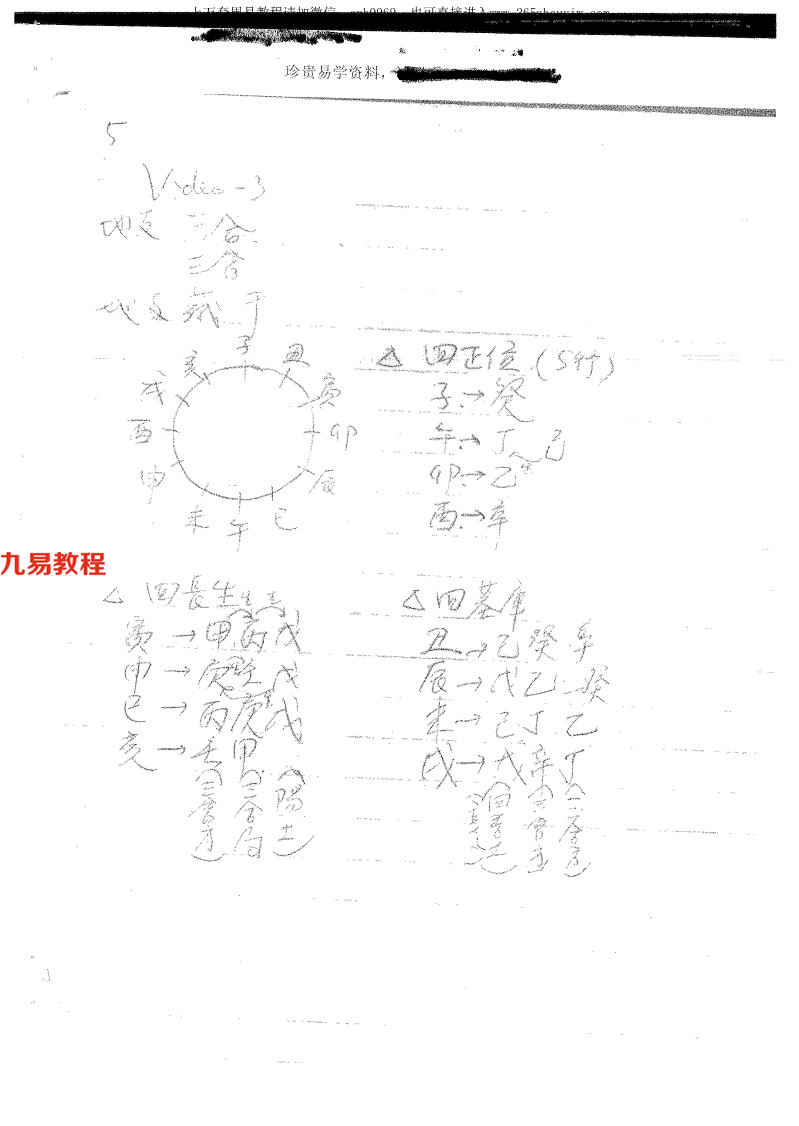 珍贵易学资料,
5
Video-3
地支 三合
三會
地支 藏干
子
亥 丑
戌 寅
酉 卯
申 辰
未 午 巳
△ 四正位 (5行)
子→癸
午→丁 己
卯→乙
酉→辛
九易教程
△ 四長生
寅→甲丙戊
申→庚壬戊
巳→丙庚戊
亥→壬甲
(三會方) (三合局) (陽土)
△ 四墓庫
丑→己癸辛
辰→戊乙癸
未→己丁乙
戌→戊辛丁